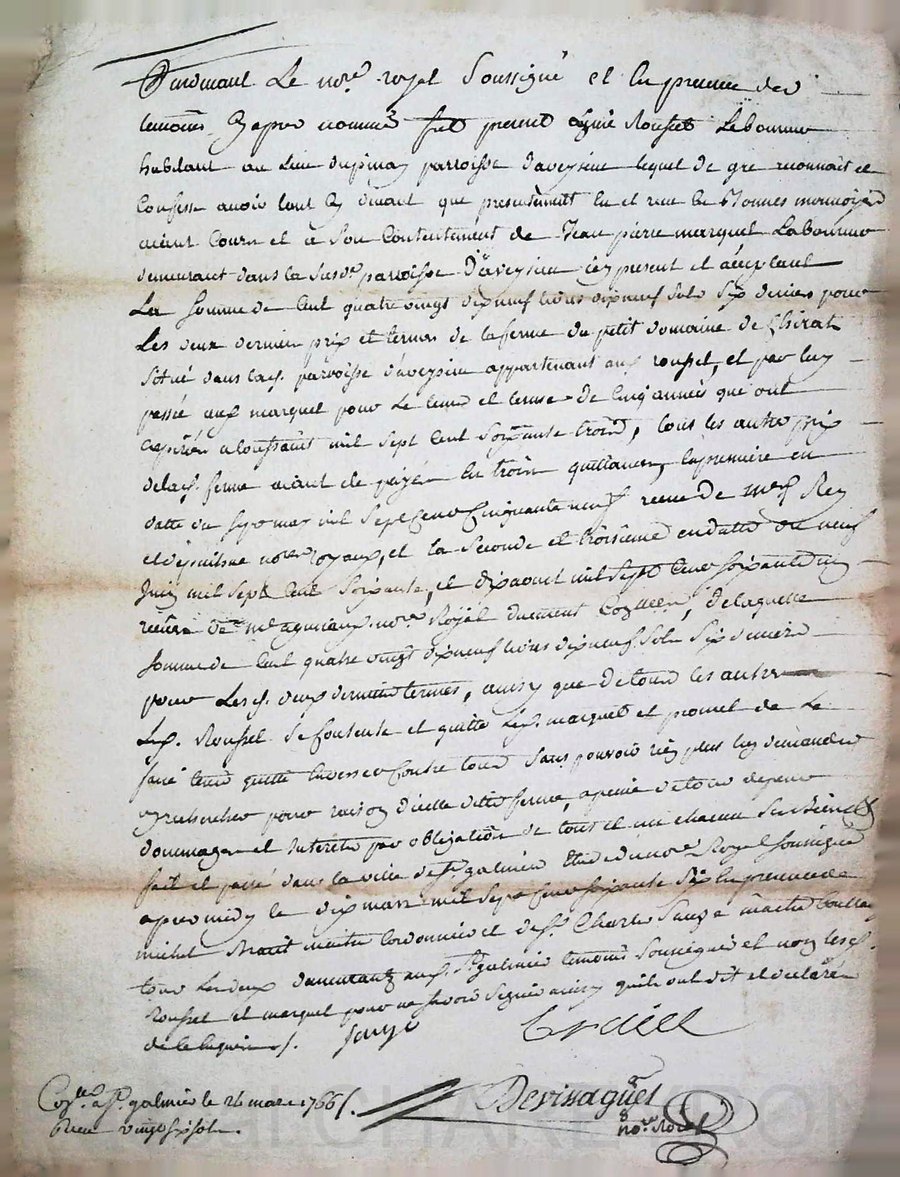 Pardevant Le nore royal Soussigné et En presence des
temoins Cy apres nommés fut present Roussel Laboureur
habitant au Lieu dupinay parroisse daveysieu lequel de gré reconnait et
Confesse avoir tant Cy devant que presentement Eu et receu En Monnes monnoyes
aiant Cours et a Son Contentement de Jean pierre marquet Laboureur
demeurant dans la Susde parroisse D'aveysieu icy present et acceptant
La Somme de Cent quatre vingt dixneuf livres dixneuf Sols Six deniers pour
Les deux derniers prix et termes de la ferme du petit domaine de Chirat
Situé dans lad. parroisse d'aveysieu appartenant aud roussel, et par luy
passée aud marquet pour Le tems et terme de Cinq années qui ont
expirées a toussaint mil Sept Cent Soixante trois, tous les autres prix
delad. ferme aiant été payés En trois quittances, la premiere en
datte du Sept mars mil Sept Cent Cinquante neuf receue de Rey
et nores royaux, et la Seconde et troisieme en dattes du neuf
Juin mil Sept Cent Soixante, et dix aout mil Sept Cent Soixante deux
receues de Me nore Royal duement Conllées, delaquelle
Somme de Cent quatre vingt dixneuf livres dixneuf Sols Six deniers
pour Lesd. deux derniers termes, aussy que de tous les autres
Led. Roussel Se Contente et quitte Led. marquet et promet de Le
faire tenir quitte Envers et Contre tous Sans pouvoir rien plus luy demander
ny rechercher pour raison d'icelle ditte ferme, a peine de tous depens
dommages et Interets par obligation de tous et un chacun Ses Biens
fait et passé dans la ville de St. galmier Etude du nore Royal Soussigné
apres midy le dix mars mil Sept Cent Soixante Six En presence de
michel maitre Cordonnier et de Sr. Charles Sauze maitre
tous Les deux demeurants aud. St. galmier temoins Soussignés et non lesd.
Roussel et marquet pour ne Savoir Signer ainsy qu'ils ont dit et declaré
de ce Enquis
Sauze
Devissaguet
nore Royal
Conllé a St. galmier le 24 mars 1766
Receu vingt six sols